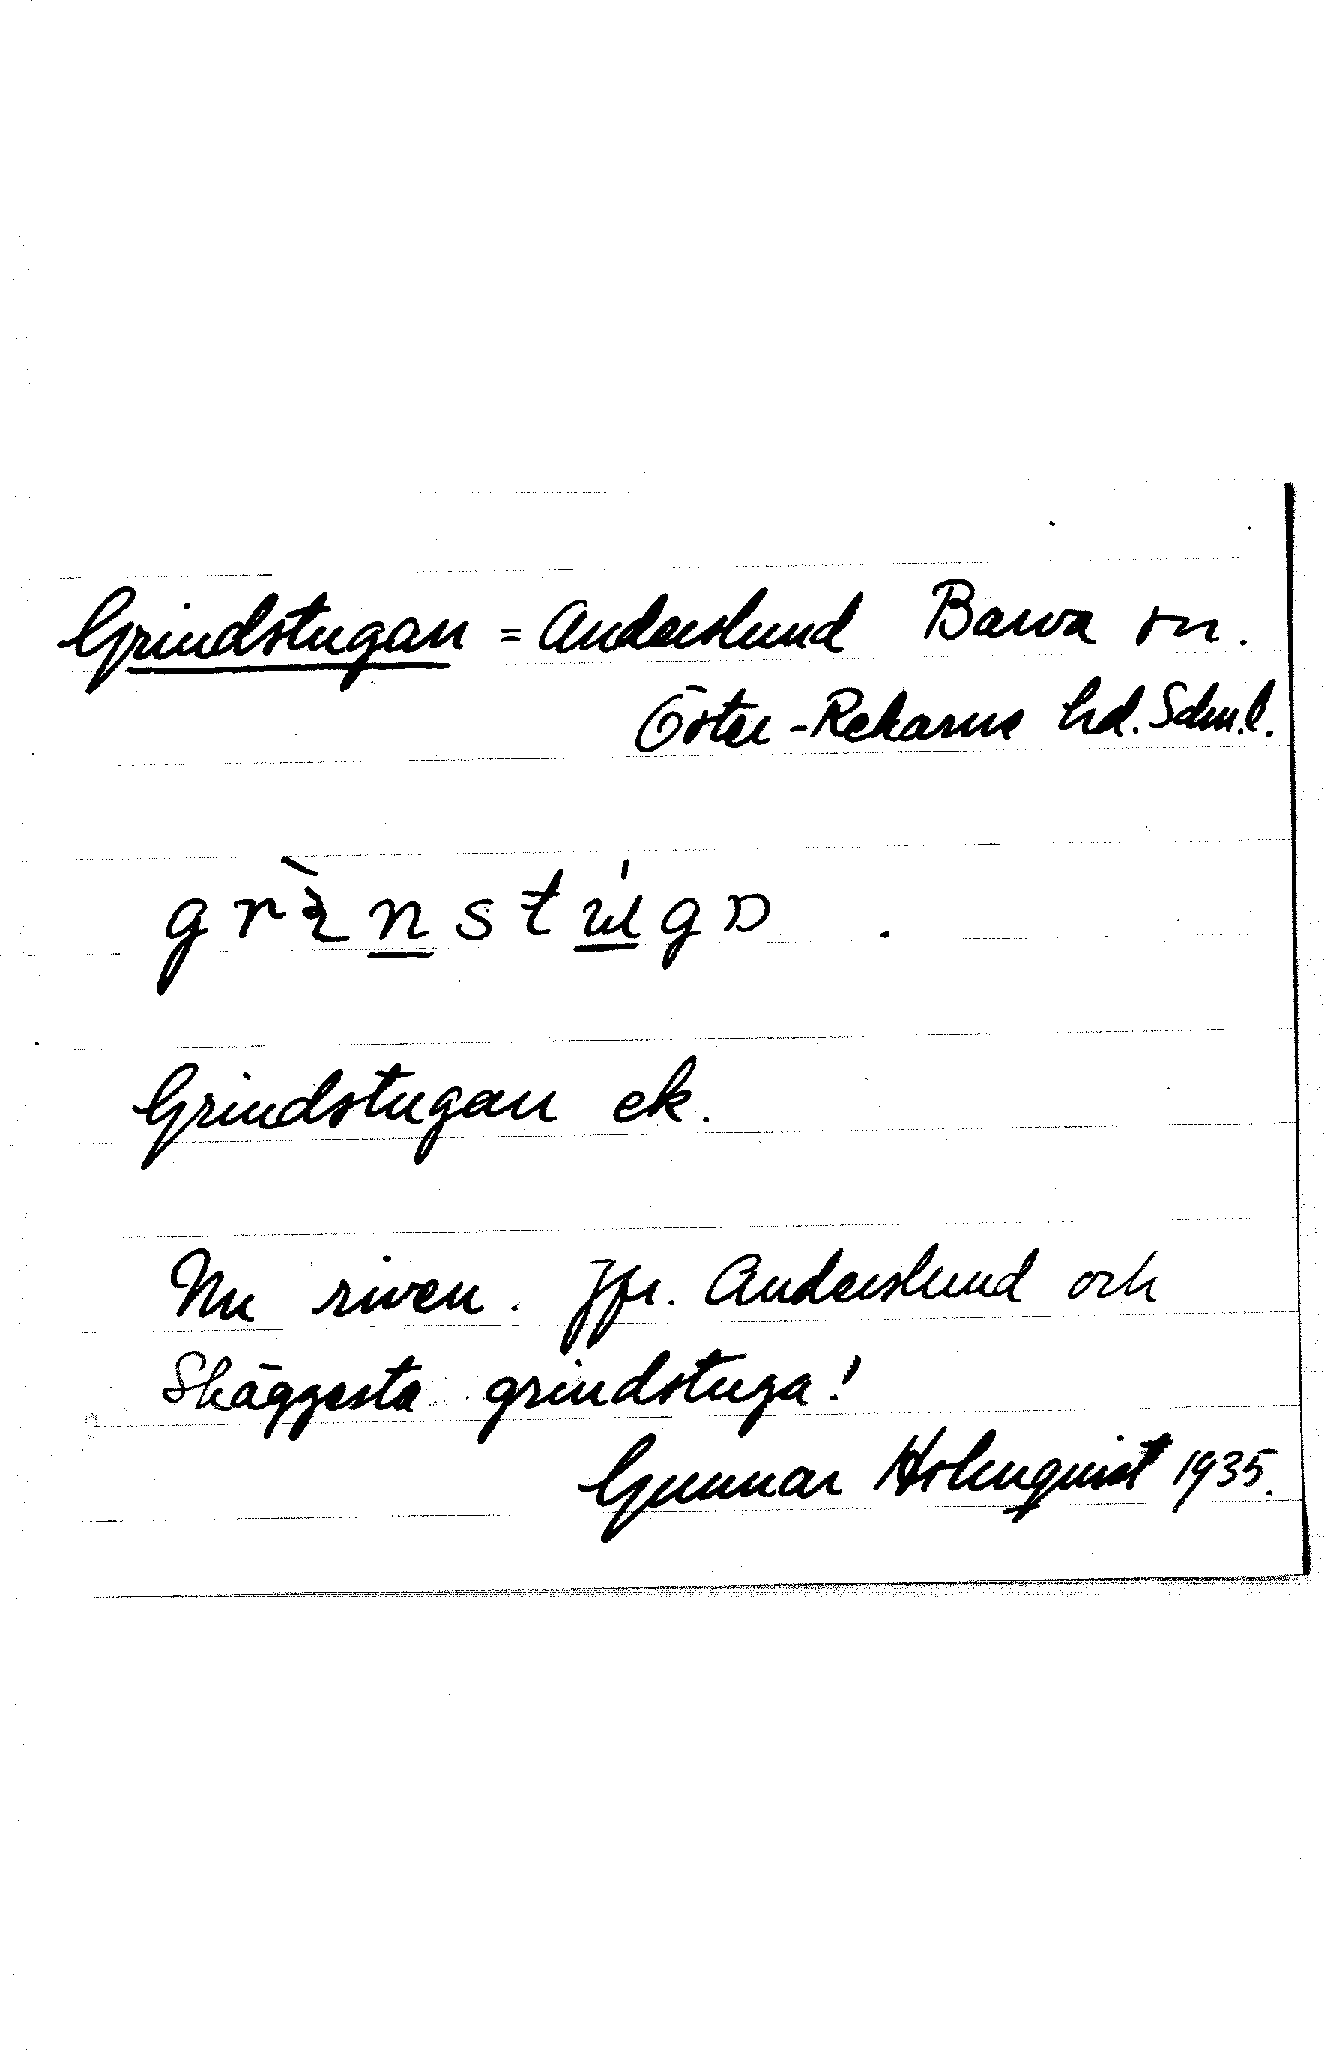 Grindstugan = Anderslund Barva sn.
Öster-Rekarne hd. Sdm. l.
grɩ̀nstúgɒ .
Grindstugan ek.
Nu riven. Jfr. Anderslund och
Skäggesta grindstuga!
Gunnar Holmquist 1935.